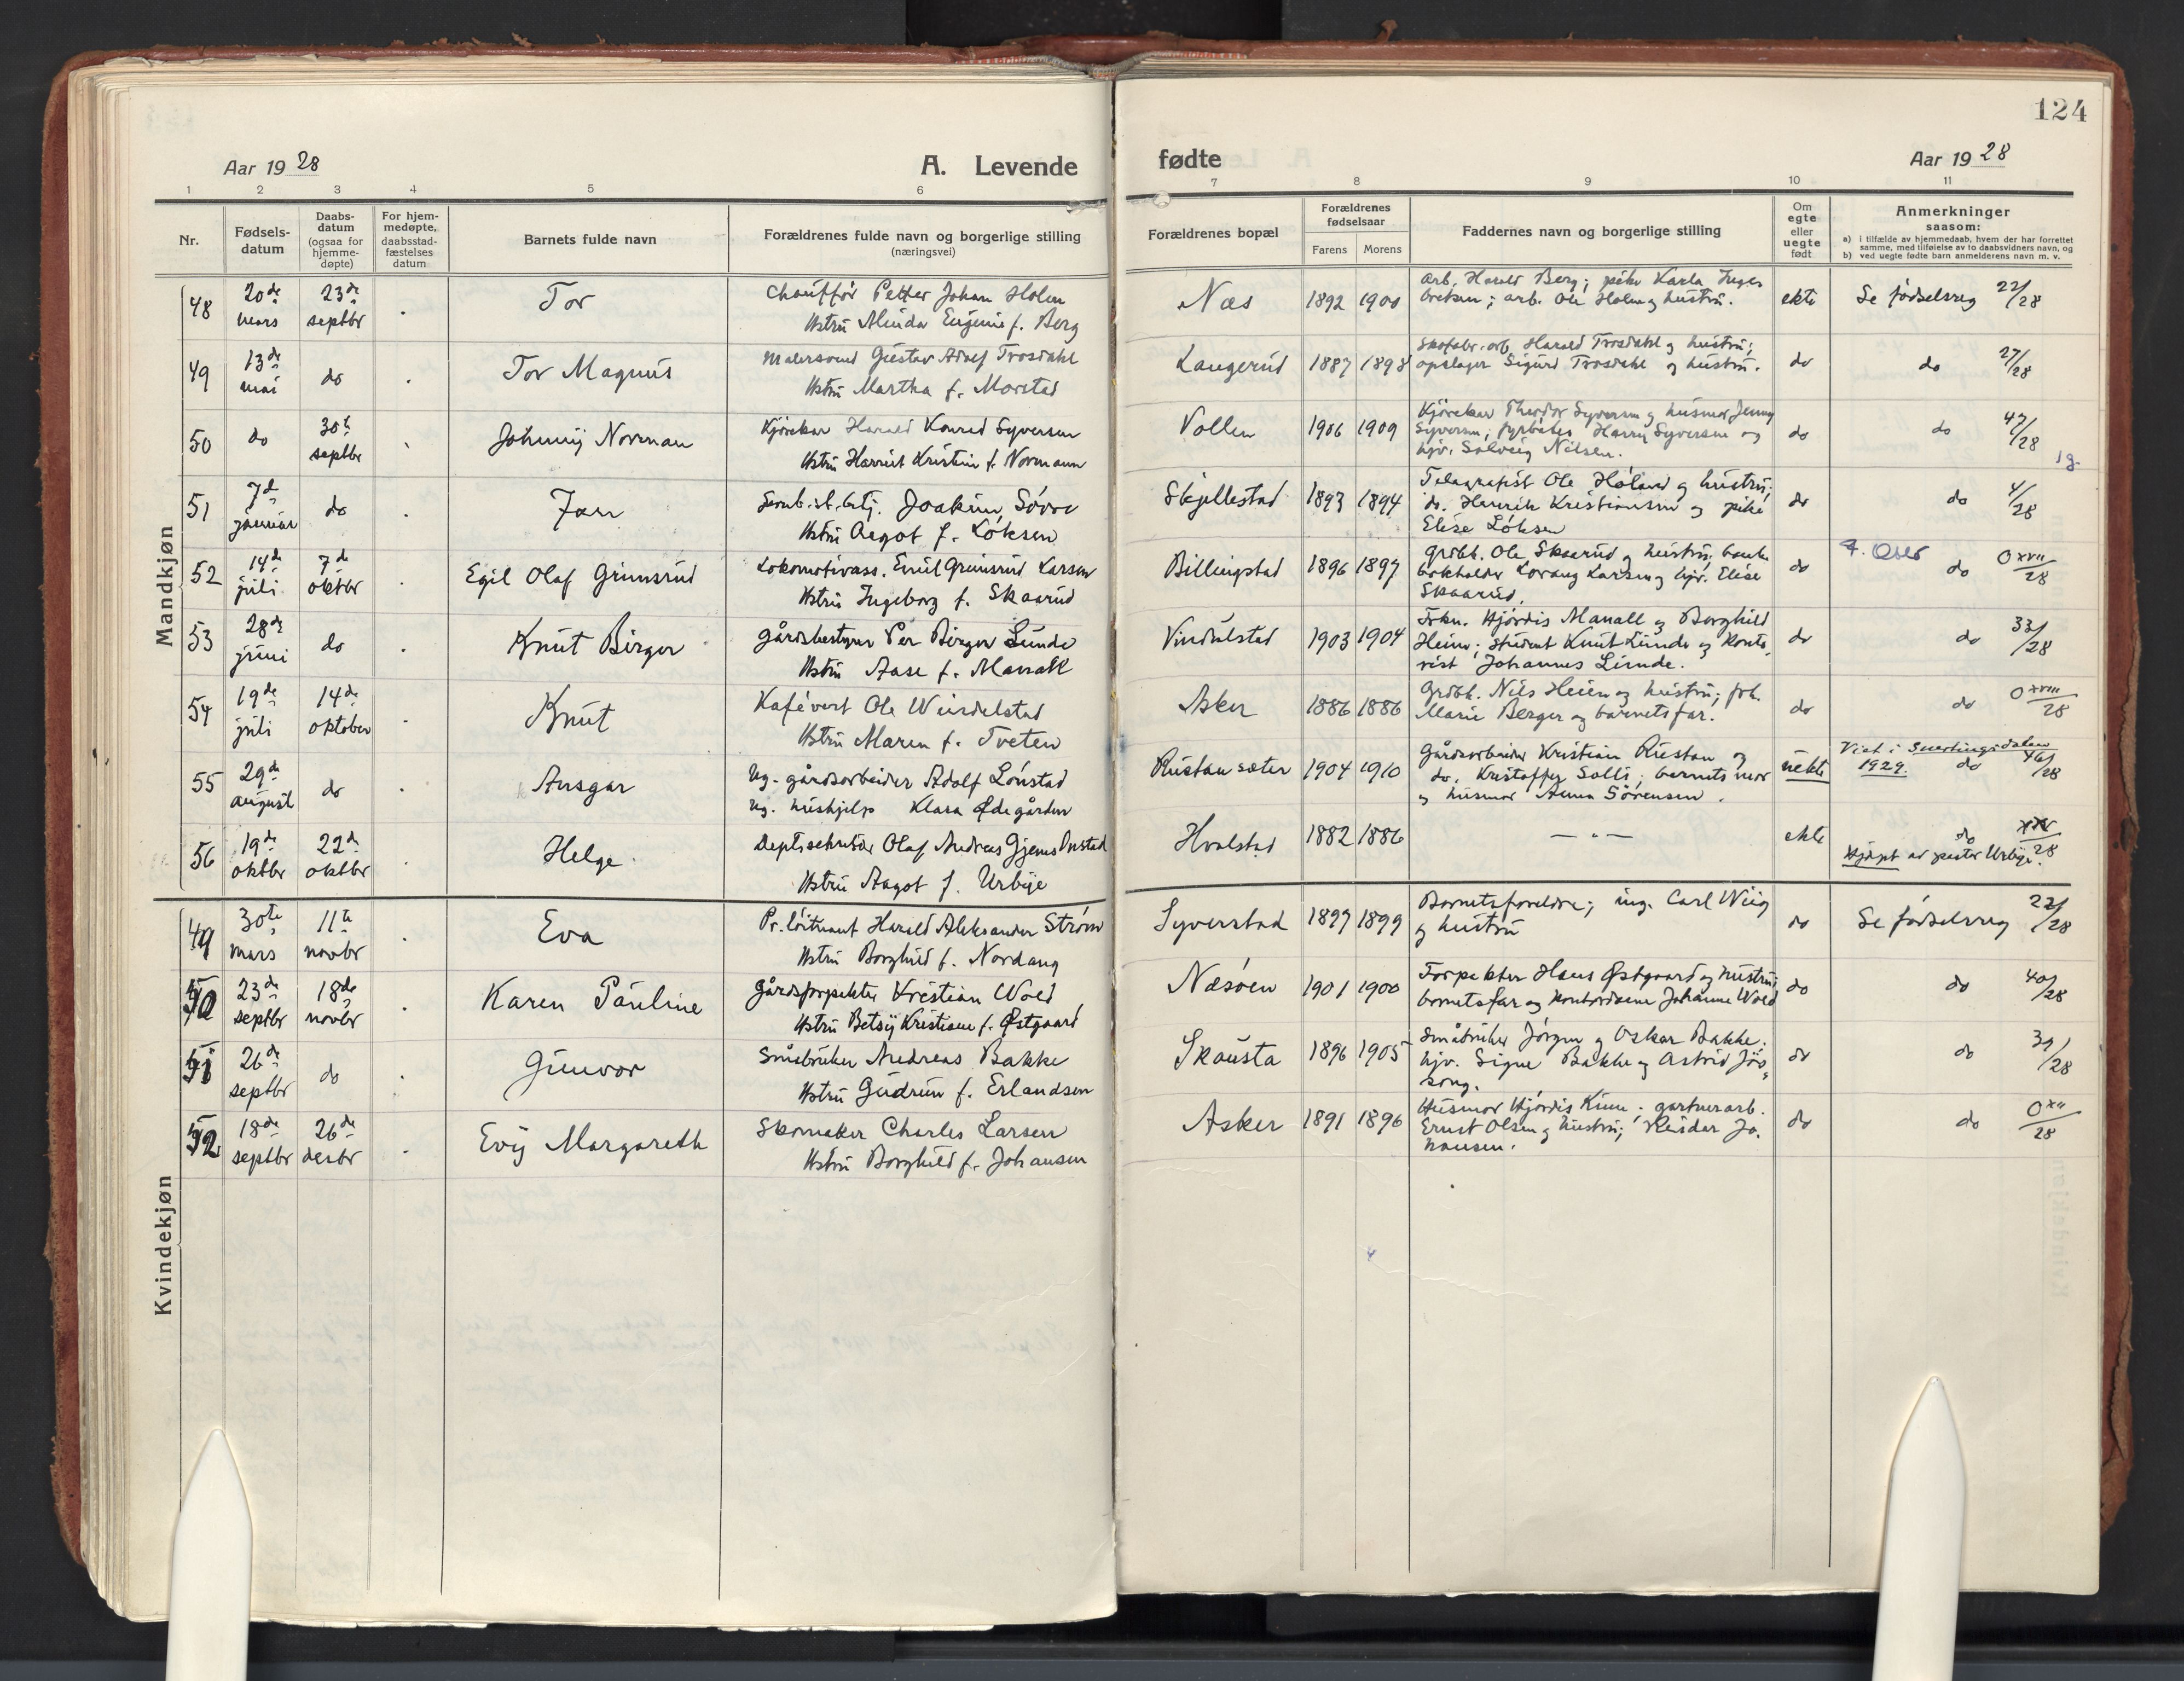 124
Aar 1928
A. Levende
fødte
Aar 1928
1 2 3 4 5 6 7 8 9 10 11
Nr.
Fødsels-
datum
Daabs-
datum
(ogsaa for
hjemme-
døpte)
For hjem-
medøpte,
daabsstad-
fæstelses
datum
Barnets fulde navn
Forældrenes fulde navn og borgerlige stilling
(næringsvei)
Forældrenes bopæl
Forældrenes
fødselsaar
Farens Morens
Faddernes navn og borgerlige stilling
Om
egte
eller
uegte
født
Anmerkninger
saasom:
a) i tilfælde av hjemmedaab, hvem der har forrettet
samme, med tilføielse av to daabsvidners navn, og
b) ved uegte fødte barn anmelderens navn m. v.
Mandkjøn
48 20de mars 23de septbr Tor
Chauffør Petter Johan Holm
Hstru Alinda Eugenie f. Berg
Næs 1892 1900
arb. Harald Berg; pike Karla Inge-
; arb. Ole Holm og hustru.
ekte Se fødselsreg 22/28
49 13de mai do Tor Magnus
Malersvend Gustav Adolf Trosdahl
Hstru Martha f. Morstad
Langerud 1887 1898
Harald Trosdahl og hustru;
opslager Sigurd Trosdahl og hustru.
do do 27/28
50 do 30te septbr Johnny Norman
Kjørekar Harald Konrad Syversen
Hstru Harriet Kristine f. Normann
Vollen 1906 1909
Kjørekar Theodor Syversen og husmor Jenny
Syversen; fyrbøter Harry Syversen og
hjv. Solveig Nilsen.
do do 47/28
51 7de januar do Jan
Joakim Sørve
Hstru Aagot f. Løksen
Skjellestad 1893 1894
Telegrafist Ole Høland og hustru;
do. Henrik Kristiansen og pike
Elise Løksen
do do 4/28
52 14de juli 7de oktbr Egil Olaf Grimsrud
Lokomotivass. Emil Grimsrud Larsen
Hstru Ingeborg f. Skaarud
Billingstad 1896 1897
Grdbk. Ole Skaarud og hustru; bank-
bokholder Lorang Larsen og hjv. Elise
Skaarud.
do F. Oslo do 0xvii/28
53 28de juni do Knut Birger
Gårdsbestyrer Per Birger Lunde
Hstru Aase f. Manall
Vindulstad 1903 1904
Frkn. Hjørdis Manall og Borghild
Heine; student Knut Lunde og konto-
rist Johannes Lunde.
do do 33/28
54 19de juli 14de oktober Knut
Kafévert Ole Windelstad
Hstru Maren f. Tveten
Asker 1886 1886
Grdbk. Nils Heien og hustru; frk.
Marie Berger og barnets far.
do do 0xviii/28
55 29de august do Ansgar
Ug. gårdsarbeider Adolf Lønstad
Ug. hushjelp Klara Ødegården
Rustansæter 1904 1910
Gårdsarbeider Kristian Rustan og
do. Kristoffer Solli; barnets mor
og husmor Anna Sørensen.
uekte Viet i Snertingsdalen
1929. do 46/28
56 19de oktbr 22de oktbr Helge
Deptsekretær Olaf Andreas Gjems Onstad
Hstru Aagot f. Urbye
Hvalstad 1882 1886
— " —
ekte do xxv/28
Hjdøpt av pastor Urbye.
Kvindekjøn
49 30te mars 11te novbr Eva
Pr. løitnant Harald Aleksander Strøm
Hstru Borghild f. Nordang
Syverstad 1897 1899
Barnets foreldre; ing. Carl Wiig
og hustru
do Se fødselsreg 22/28
50 23de septbr 18de novbr Karen Pauline
Gårdsforpakter Kristian Wold
Hstru Betsy Kristiane f. Østgaard
Nesøen 1901 1900
Forpakter Hans Østgaard og hustru;
barnets far og kontordame Johanne Wold
do do 40/28
51 26de septbr do Gunvor
Småbruker Andreas Bakke
Hstru Gudrun f. Erlandsen
Skausta 1896 1905
Småbruker Jørgen og Oskar Bakke.
hjv. Signe Bakke og Astrid
do do 39/28
52. 18de septbr 26de desbr Evy Margareth
Skomaker Charles Larsen
Hstru Borghild f. Johansen
Asker 1891 1896
Husmor Hjørdis ; gartnerarb.
Ernst Olsen og hustru; Reidar Jo-
hansen.
do do 0xii/28